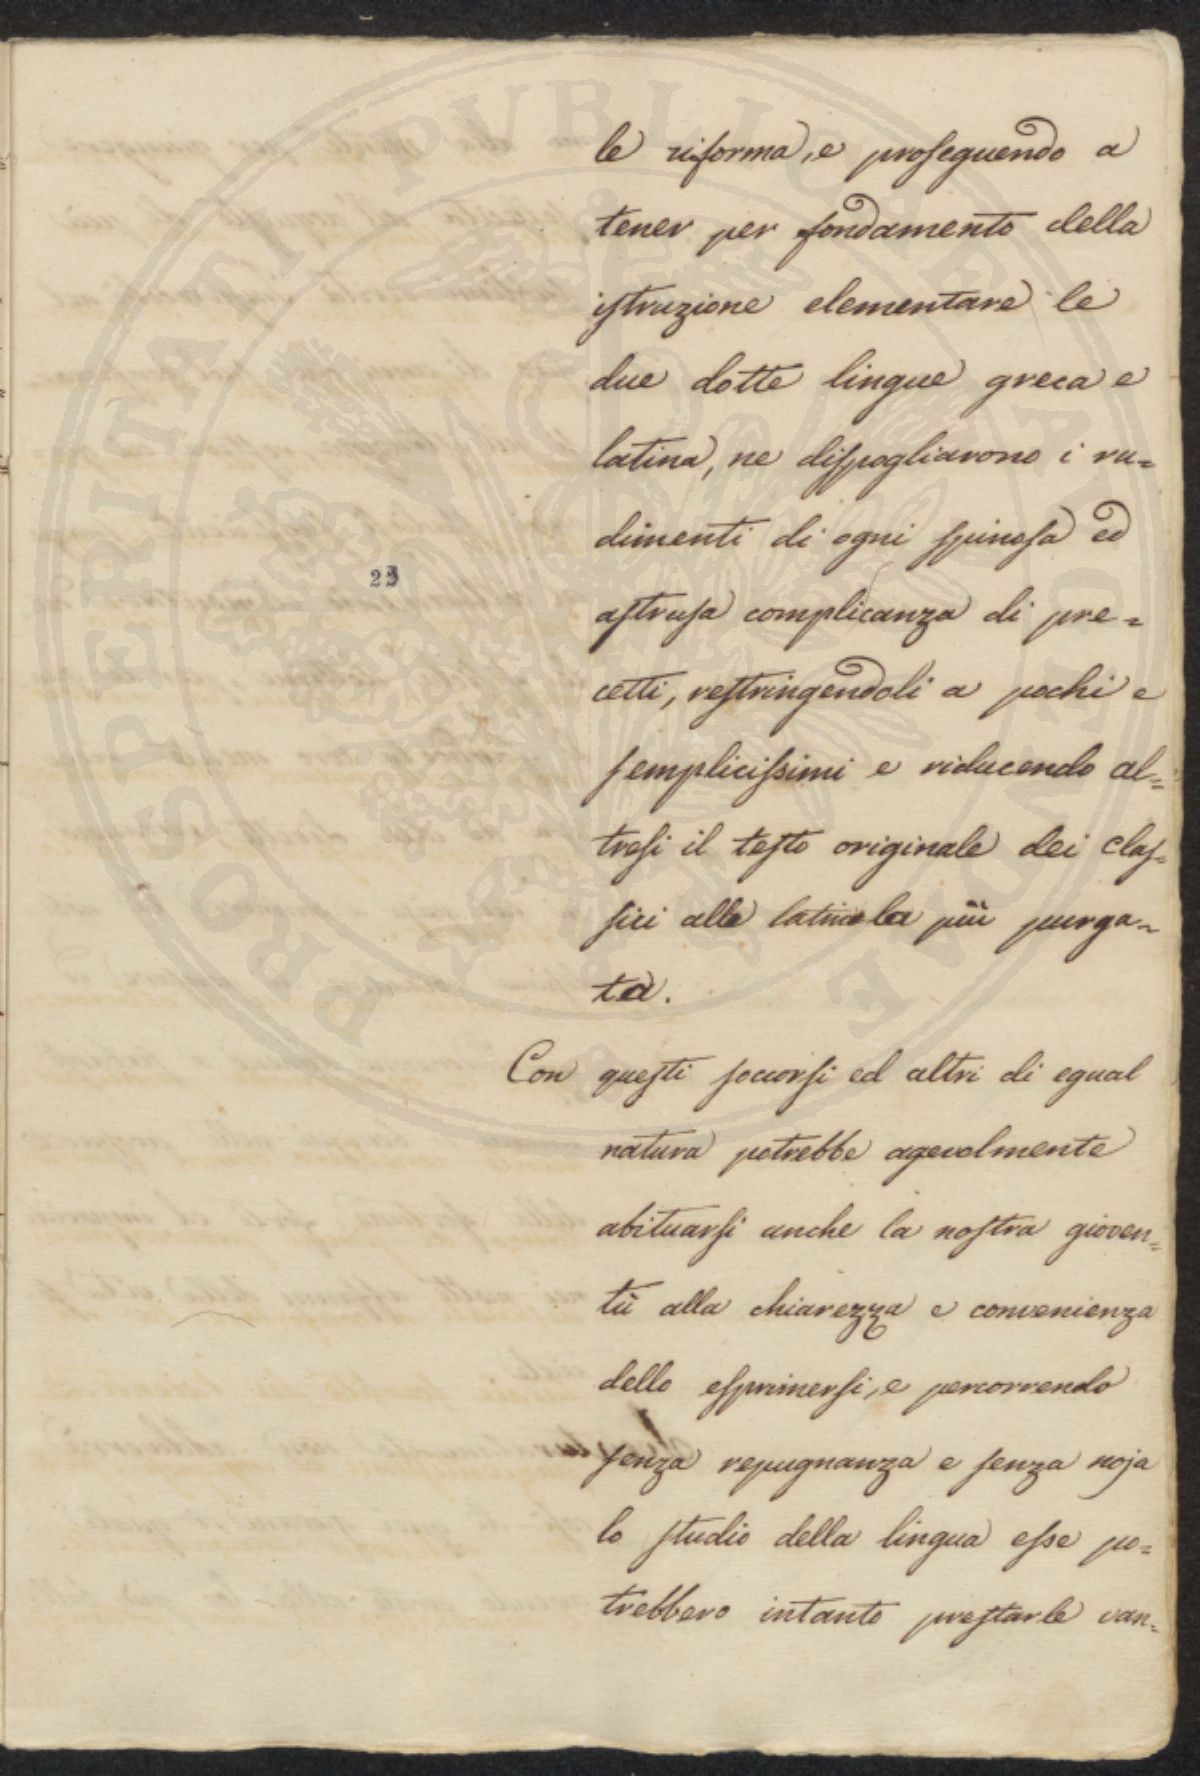 le riforma, e proseguendo a
tener per fondamento della
istruzione elementare le
due dotte lingue greca e
latina, ne dispogliarono i ru=
dimenti di ogni spinosa ed
23
astrusa complicanza di pre=
cetti, restringendoli a pochi e
semplicissimi e riducendo al=
tresi il testo originale dei clas=
sici alla latinola più purga=
ta.
Con questi soccorsi ed altri di egual
natura potrebbe agevolmente
abituarsi anche la nostra gioven=
tù alla chiarezza e convenienza
dello esprimersi, e percorrendo
senza repugnanza e senza noja
lo studio della lingua esse po=
trebbero intanto prestarle van=
PROSPERITATI PVBLICAE